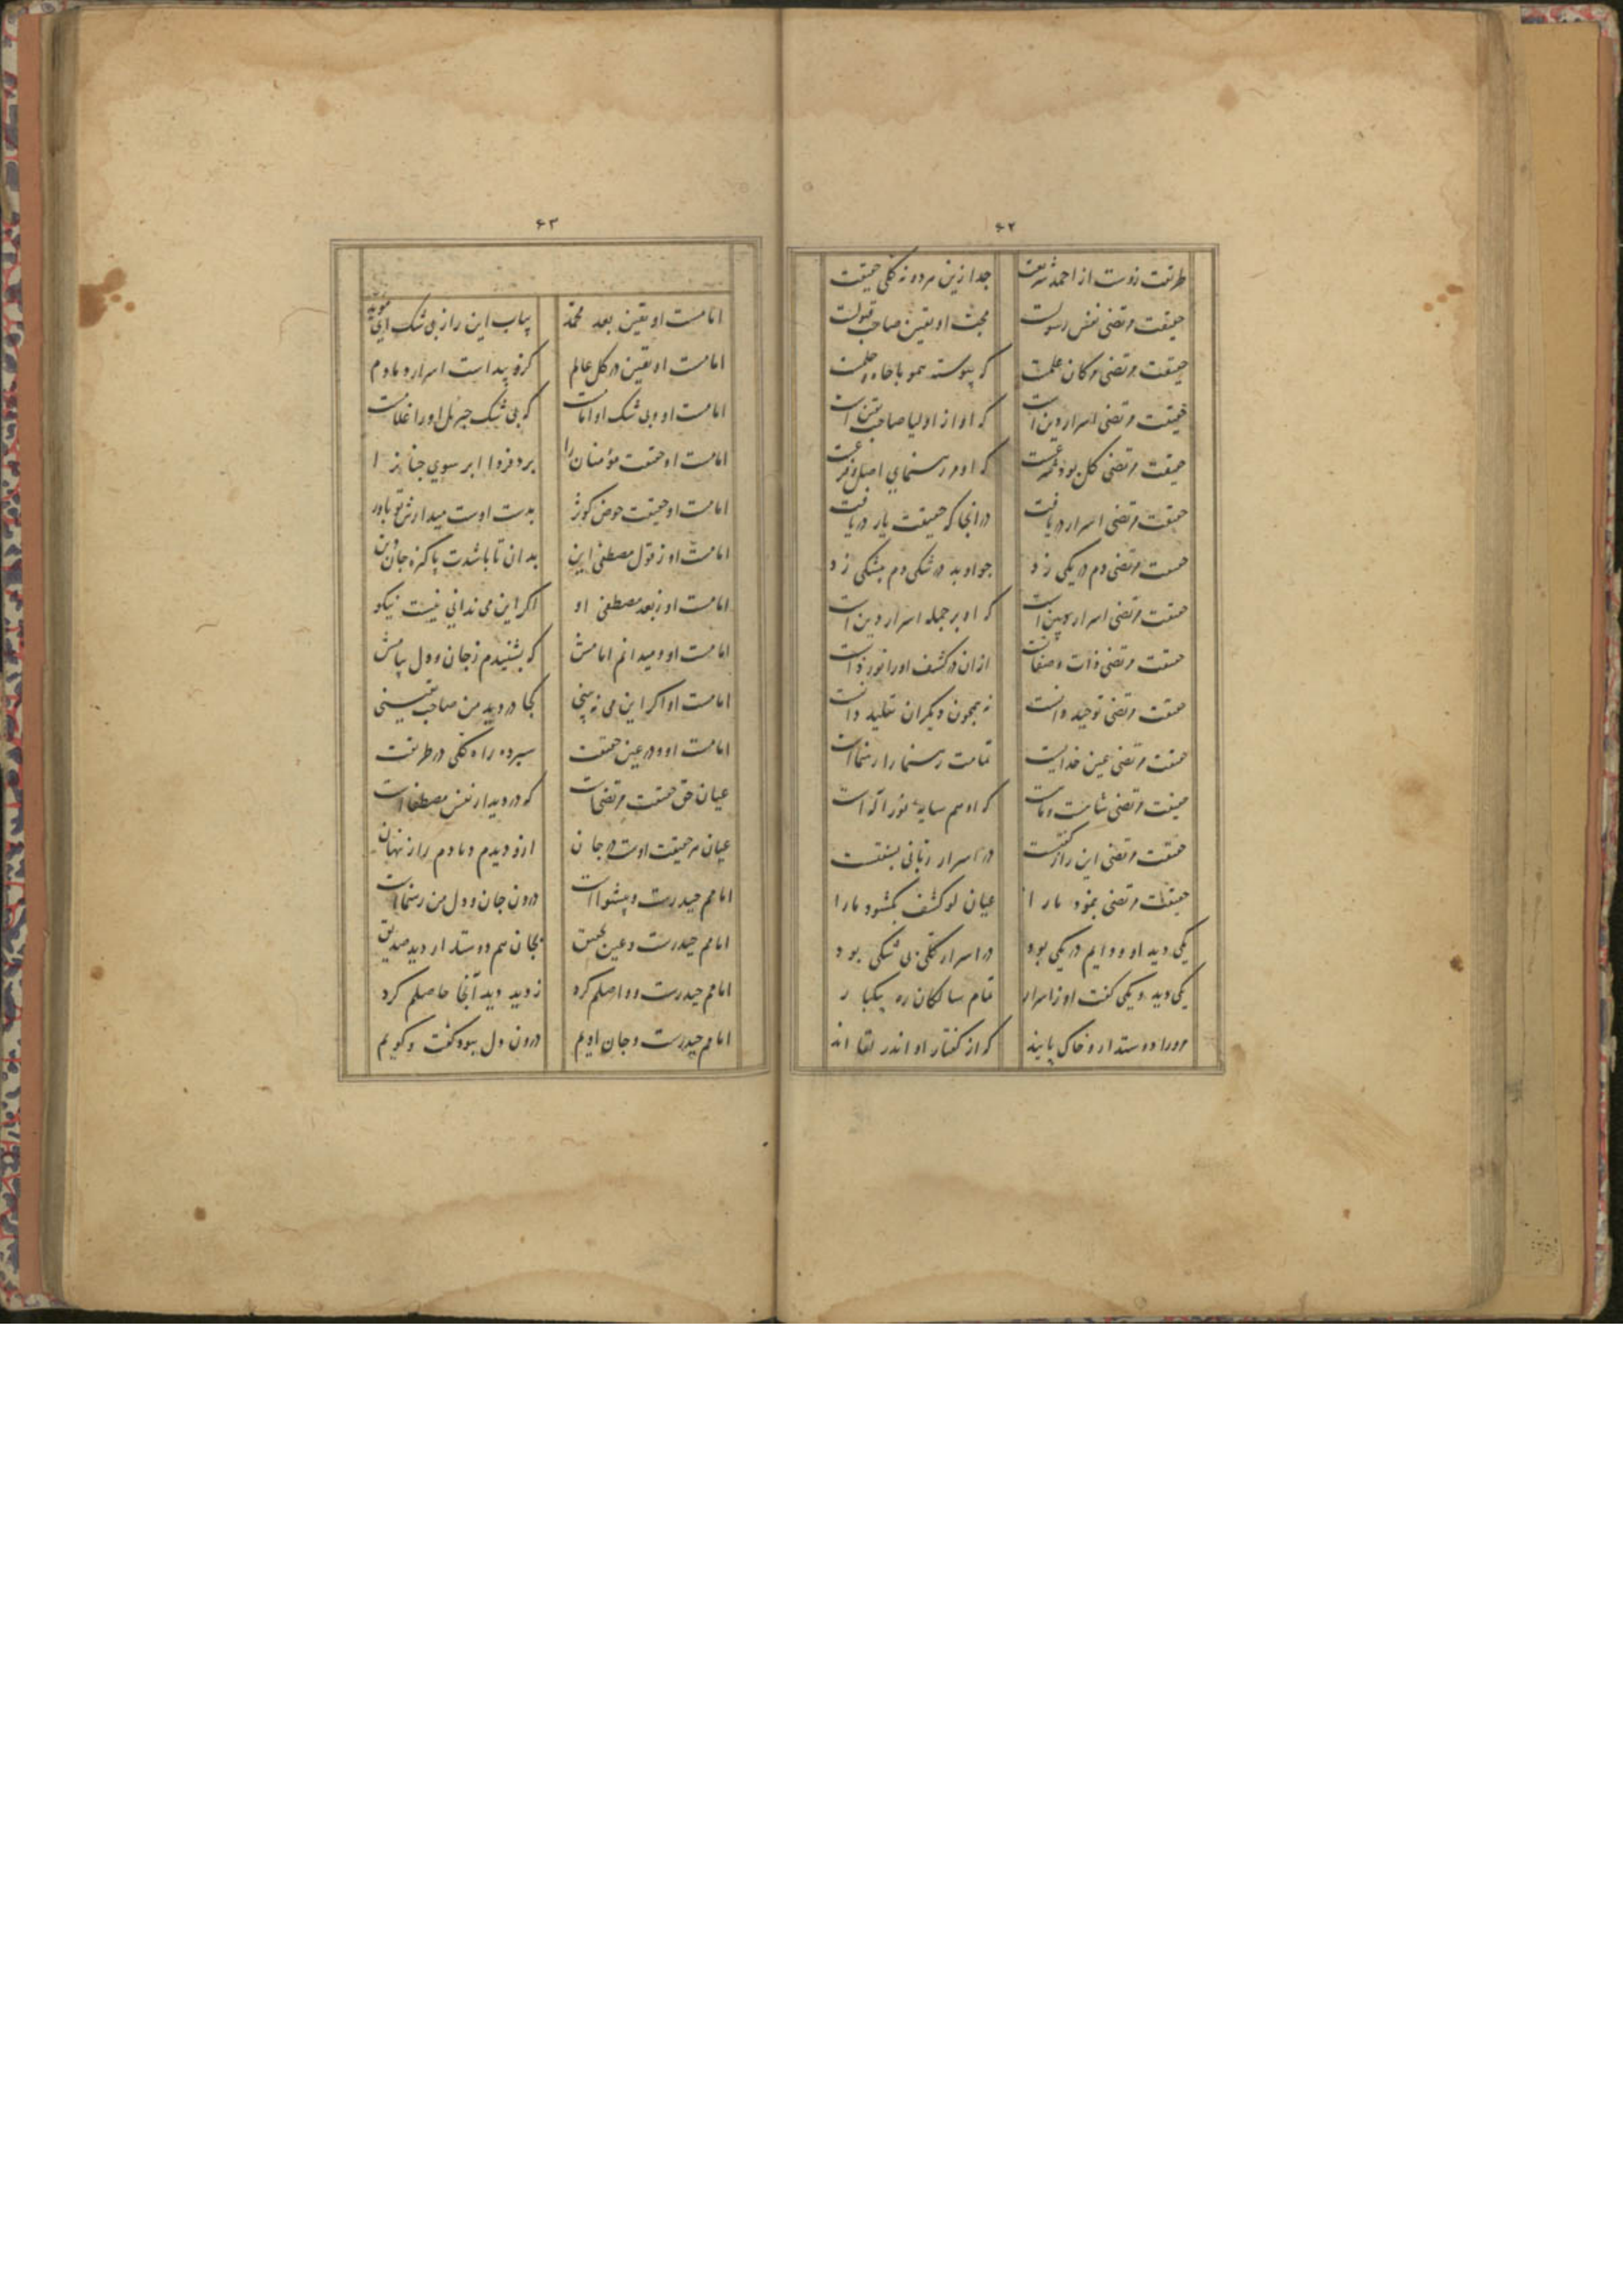 ۶۲
طریقت زوست از احمد شریعت جدا زین هر دو نه کلی حقیقت
حقیقت مرتضی نفس رسولست محبش او یقین صاحب قبولست
حقیقت مرتضی مر کان علمست که پیوسته همو با جاه و حلمست
حقیقت مرتضی اسرار دین است که او از اولیا صاحب یقین است
حقیقت مرتضی کل بود شرعست که او مر رهنمای اصل و فرعست
حقیقت مرتضی اسرار دریافت در انجا که حقیقت یار دریافت
حقیقت مرتضی دم در یکی زد جو او بد در شکی دم بیشکی زد
حقیقت مرتضی اسرار بین است که او بر جمله اسرار دین است
حقیقت مرتضی ذات و صفاتست ازان در کشف او را نور ذاتست
حقیقت مرتضی توحید دانست نه همجون دیکران تقلید دانست
حقیقت مرتضی عین خدایست تمامت رهنما را رهنماست
حقیقت مرتضی شاهست و ماهست که او هم سایهٔ نور اله است
حقیقت مرتضی این راز گفتست در اسرار ربانی بسفتست
حقیقت مرتضی بنمود ما را عیان لو کشف بکشود ما را
یکی دید او و دایم در یکی بود در اسرار کلی بی شکی بود
یکی دید و یکی کفت او ز اسرار تمام سالکان ره بیکبار
مر او را دوستدار و خاک پایند که از کفتار او اندر لقااند
۶۳
امامست او یقین بعد محمد بیاب این راز بی شک ای مؤید
امامست او یقین در کل عالم کزو پیداست اسرار دمادم
امامست او و بی شک او امامست که بی شک جبرئیل او را غلامست
امامست او حقیقت مؤمنان را برد فردا ابر سوی جنانرا
امامست او حقیقت حوض کوثر بدست اوست میدارش تو باور
امامست او ز قول مصطفی این بدان تا باشدت پاکیزه جان و دین
امامست او ز بعد مصطفی او اکر این می ندانی نیست نیکو
امامست او و میدانم امامش که بشنیدم ز جان و دل پیامش
امامست او اکر این می نه بینی کجا در دید من صاحب یقینی
امامست او و در عین حقیقت سپرده راه کلی در طریقت
عیان حق حقیقت مرتضی است که در دیدار نفس مصطفا است
عیان سر حقیقت اوست در جان ازو دیدم دمادم راز پنهان
امامم حیدرست و پیشوا است درون جان و دل من رهنما است
امامم حیدرست و عین تحقیق بجان هم دوستدار دید صدیق
امامم حیدرست و واصلم کرد ز دید دید آنجا حاصلم کرد
امامم حیدرست و جان اویم درون دل ببود کفت و کویم